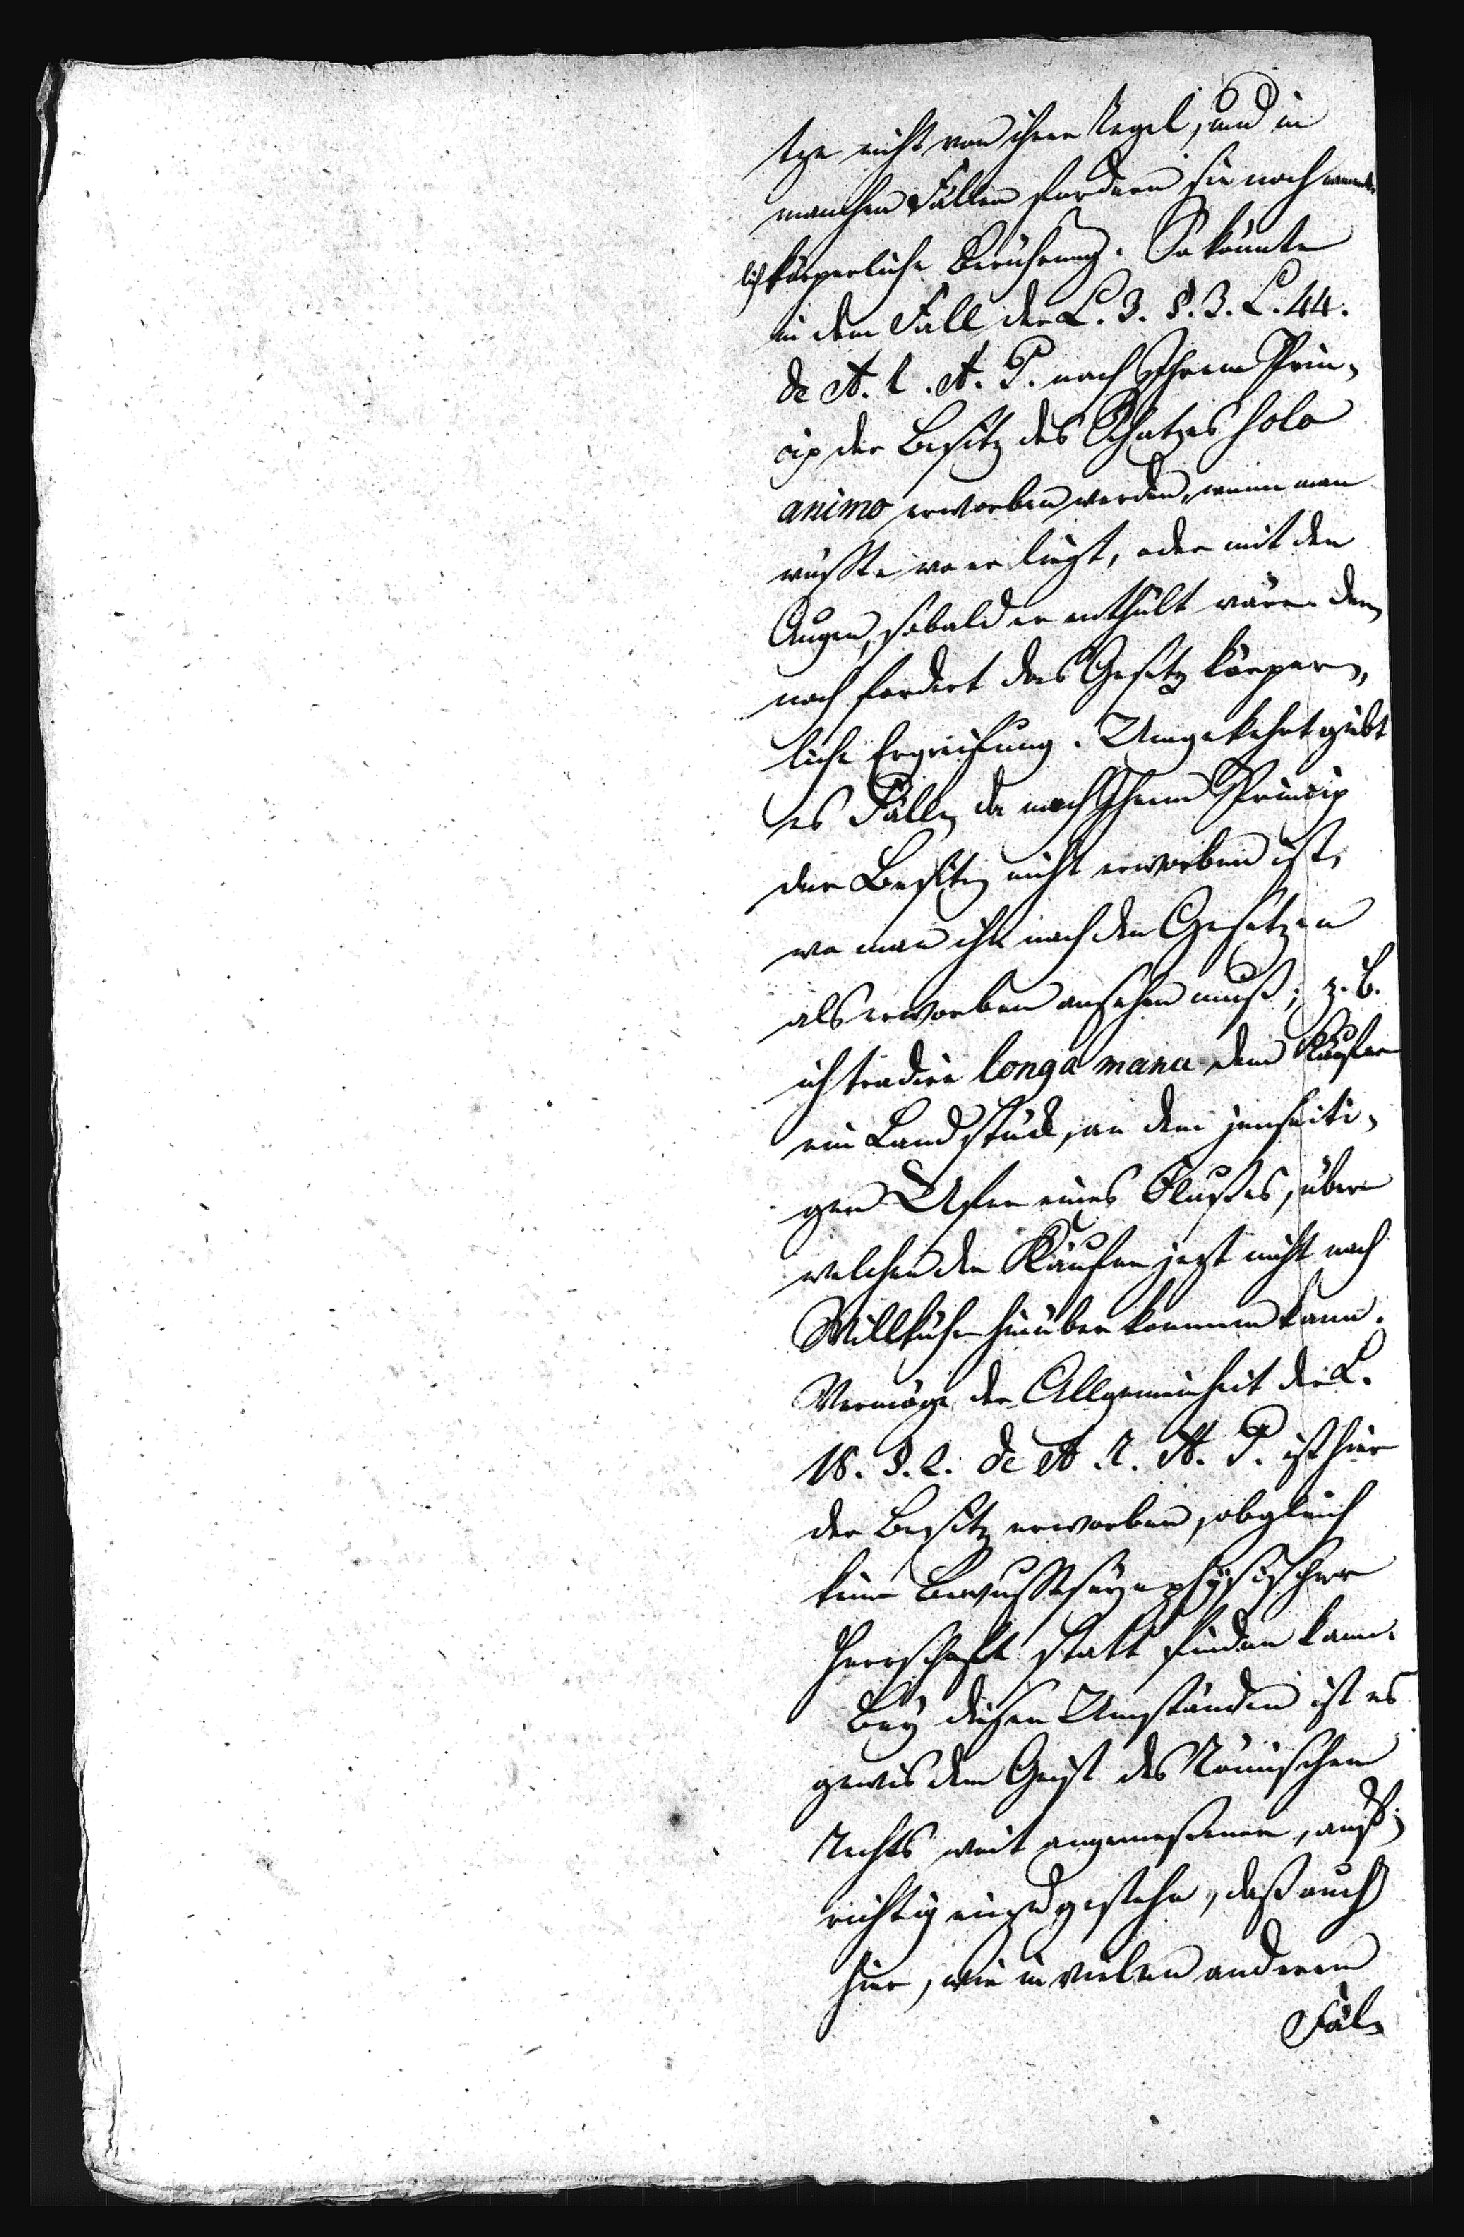 tze nicht von ihrer Regel, und in
manchen Fällen fordern sie noch nament
lich körperliche Berührung. So könnte
in dem Fall der L. 3. §. 3. L. 44.
de A. l. A. P. nach Ihrem Prin-
cip der Besitz des Schatzes solo
animo erworben werden, wenn man
wußte wo er liegt, oder mit den
Augen, sobald er enthült wäre den,
noch fordert das Gesetz körper,
liche Ergreifung. Umgekehrt giebt
es Fälle, da nach Ihrem Princip
der Besitz nicht erworben ist,
wo man ihn nach den Gesetzen
als erworben ansehen muß; z. B.
ich tradire longa manu dem Käufer
ein Landstück, an dem jenseiti-
gen Ufer eines Flußes, über
welchen der Käufer jezt nicht nach
Willkühr hinüber kommen kann.
Vermöge der Allgemeinheit der L.
18. §. 2. de A. l. A. P. ist hier
der Besitz erworben, obgleich
kein Bewußtseyn physischer
Herrschaft statt finden kann.
Bey diesen Umständen ist es
gewis dem Geist des Römischen
Rechts weit angemeßener, auf-
richtig einzugestehn, daß auch
hier, wie in vielen anderen
Fäl-